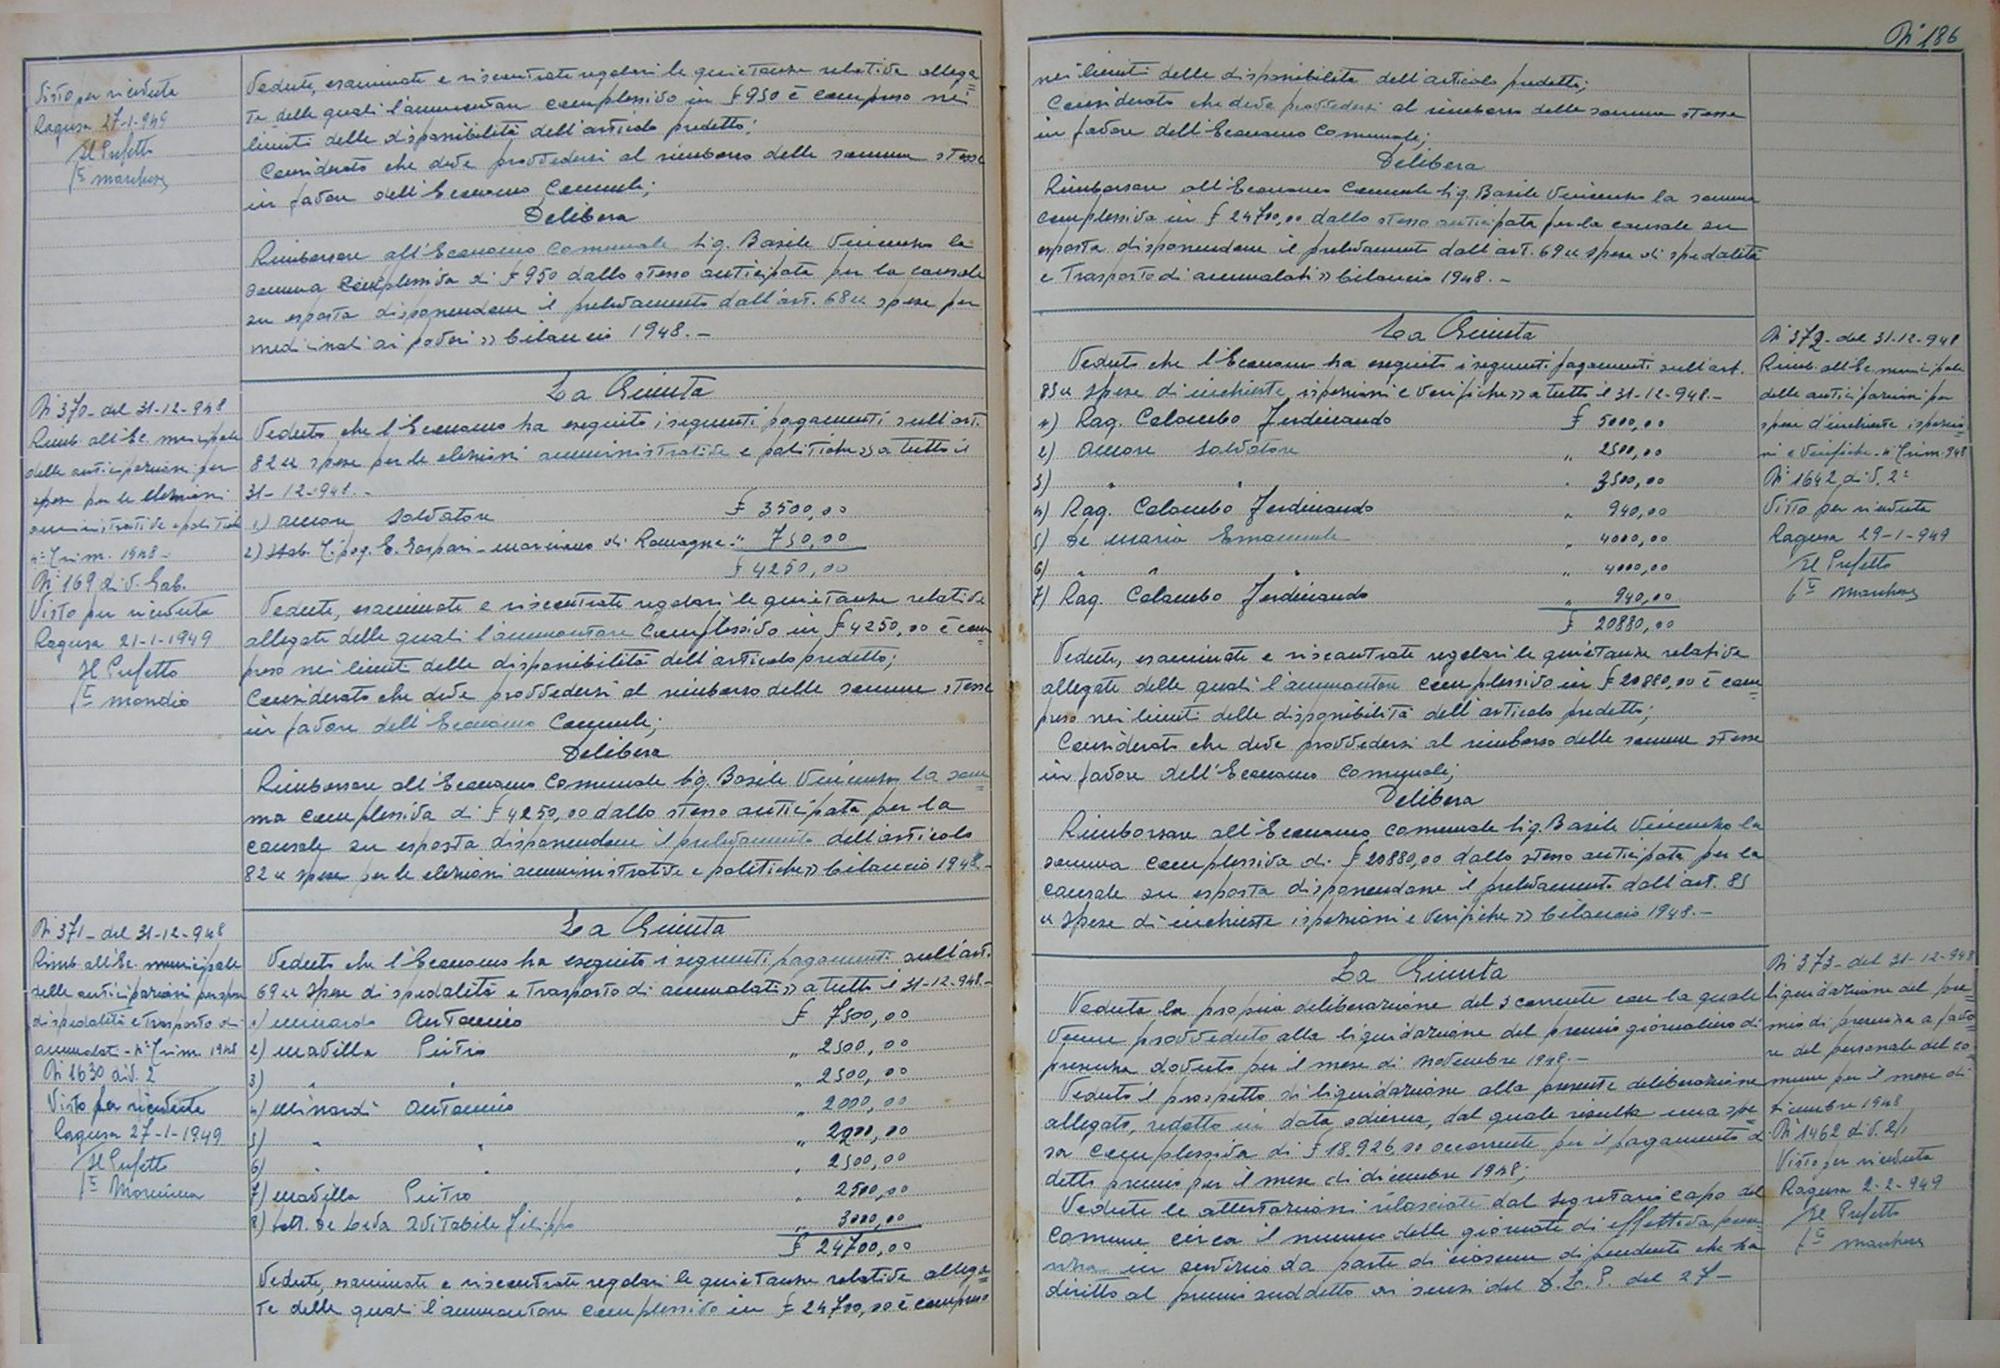 Visto per ricevuta
Ragusa 27-1-949
Il Prefetto
Vedute, esaminate e riscontrate regolari le quietanze relative allega=
te delle quali l'ammontare complessivo in £ 950 è compreso nei
limiti delle disponibilità dell'articolo predetto;
Considerato che deve provvedersi al rimborso delle somme stesse
in favore dell'Economo Comunale;
Delibera
Rimborsare all'Economo Comunale Sig. Basile Vincenzo la
somma complessiva di £ 950 dallo stesso anticipata per la causale
su esposta disponendone il prelevamento dall'art. 68 « spese per
medicinali ai poveri » bilancio 1948.-
N° 370- del 31-12-948
Rimb. all'Ec. municipale
delle anticipazioni per
spese per le elezioni
amministrative e politiche
4° Trim. 1948-
N° 169 div. Gab.
Visto per ricevuta
Ragusa 21-1-1949
Il Prefetto
La Giunta
Veduto che l'Economo ha eseguito i seguenti pagamenti sull'art.
82 « spese per le elezioni amministrative e politiche » a tutto il
31-12-948.-
1) Amore Salvatore £ 3500,00
2) Stab. Tipog. E. Gaspari - Morciano di Romagna - " 750,00
£ 4250,00
Vedute, esaminate e riscontrate regolari le quietanze relative
allegate delle quali l'ammontare complessivo in £ 4250,00 è com=
preso nei limiti delle disponibilità dell'articolo predetto;
Considerato che deve provvedersi al rimborso delle somme stesse
in favore dell'Economo Comunale;
Delibera
Rimborsare all'Economo Comunale Sig. Basile Vincenzo la som=
ma complessiva di £ 4250,00 dallo stesso anticipata per la
causale su esposta disponendone il prelevamento dell'articolo
82 « spese per le elezioni amministrative e politiche » bilancio 1948.-
N° 371- del 31-12-948
Rimb. all'Ec. municipale
delle anticipazioni per spese
di spedalità e trasporto di
ammalati - 4° Trim. 1948
N° 1630 div. 2
Visto per ricevuta
Ragusa 27-1-1949
Il Prefetto
La Giunta
Veduto che l'Economo ha eseguito i seguenti pagamenti sull'art.
69 « Spese di spedalità e Trasporto di ammalati » a tutto il 31-12-948.-
1) Minardo Antonino £ 7500,00
2) Mavilla Pietro " 2500,00
3) " " " 2500,00
4) Minardi Antonino " 2000,00
5) " " " 2000,00
6) " " " 2500,00
7) Mavilla Pietro " 2500,00
8) Dott. De Leva Avitabile Filippo " 3000,00
£ 24700,00
Vedute, esaminate e riscontrate regolari le quietanze relative allega=
te delle quali l'ammontare complessivo in £ 24700,00 è compreso
N° 186
nei limiti delle disponibilità dell'articolo predetto;
Considerato che deve provvedersi al rimborso delle somme stesse
in favore dell'Economo Comunale;
Delibera
Rimborsare all'Economo Comunale Sig. Basile Vincenzo la somma
complessiva in £ 24700,00 dallo stesso anticipata per la causale su
esposta disponendone il prelevamento dall'art. 69 « spese di spedalità
e Trasporto di ammalati » bilancio 1948.-
La Giunta
Veduto che l'Economo ha eseguito i seguenti pagamenti sull'art.
85 « Spese di inchieste, ispezioni e verifiche » a tutto il 31-12-948.-
1) Rag. Colombo Ferdinando £ 5000,00
2) Amore Salvatore " 2500,00
3) " " " 3500,00
4) Rag. Colombo Ferdinando " 940,00
5) De Maria Emanuele " 4000,00
6) " " " " 4000,00
7) Rag. Colombo Ferdinando " 940,00
£ 20880,00
Vedute, esaminate e riscontrate regolari le quietanze relative
allegate delle quali l'ammontare complessivo in £ 20880,00 è com=
preso nei limiti delle disponibilità dell'articolo predetto;
Considerato che deve provvedersi al rimborso delle somme stesse
in favore dell'Economo Comunale;
Delibera
Rimborsare all'Economo Comunale Sig. Basile Vincenzo la
somma complessiva di £ 20880,00 dallo stesso anticipata per la
causale su esposta disponendone il prelevamento dall'art. 85
« Spese di inchieste ispezioni e verifiche » bilancio 1948.-
N° 372- del 31-12-948
Rimb. all'Ec. municipale
delle anticipazioni per
spese d'inchieste ispezio=
ni e verifiche - 4° Trim. 948
N° 1642 div. 2ª
Visto per ricevuta
Ragusa 29-1-949
Il Prefetto
La Giunta
Veduta la propria deliberazione del 3 corrente con la quale
venne provveduto alla liquidazione del premio giornaliero di
presenza dovuto per il mese di novembre 1948.-
Veduto il prospetto di liquidazione alla presente deliberazione
allegato, redatto in data odierna, dal quale risulta una spe=
sa complessiva di £ 18.926,00 occorrente per il pagamento di
detto premio per il mese di dicembre 1948;
Vedute le attestazioni rilasciate dal Segretario capo del
Comune circa il numero delle giornate di effettiva prese=
nza in servizio da parte di ciascun dipendente che ha
diritto al premio suddetto ai sensi del D.L.P. del 27-
N° 373- del 31-12-948
liquidazione del pre=
mio di presenza a favo=
re del personale del co=
mune per il mese di
dicembre 1948
N° 1462 div. 2/1
Visto per ricevuta
Ragusa 2-2-949
Il Prefetto